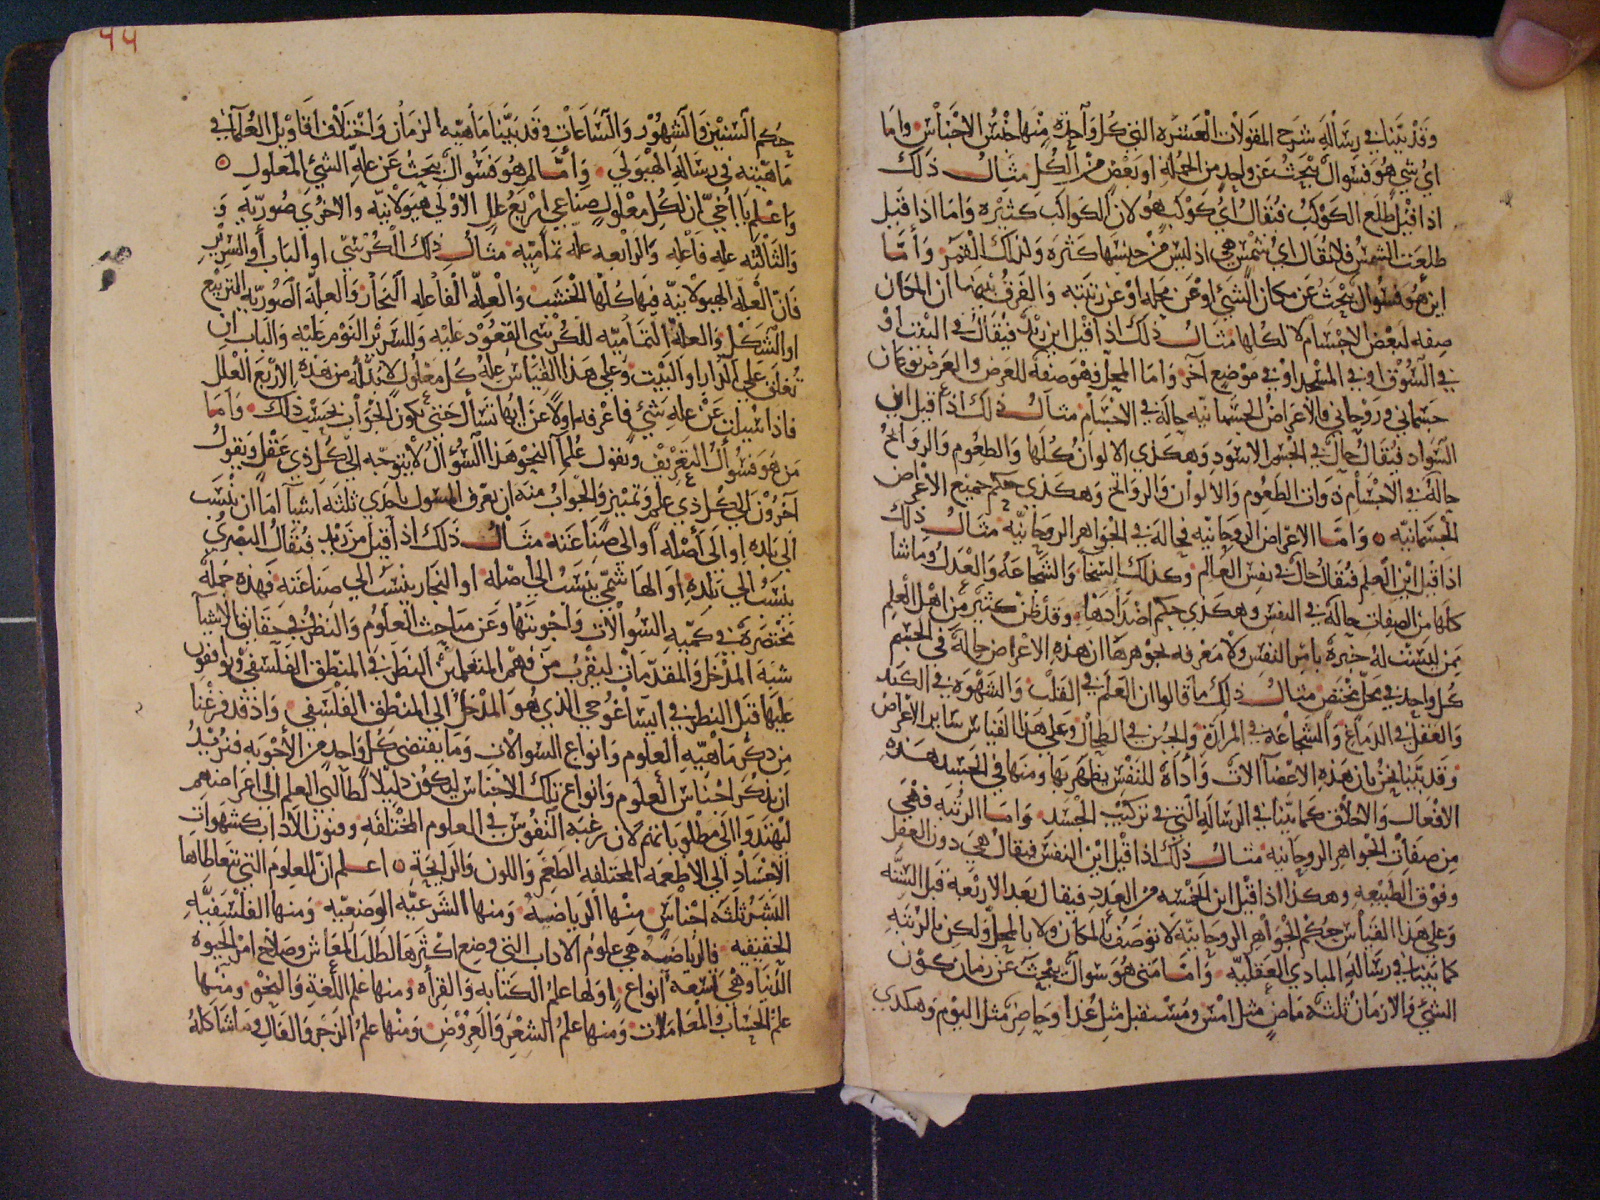 وقد بيّنا في رسالة شرح المقولات العشرة التي كل واحدة منها جنس الاجناس واما
اي شي هو فسوال يبحث عن واحد من الجملة او بعض من الكل مثال ذلك
اذا قيل طلع الكوكب فيقال اي كوكب هو لان الكواكب كثيرة واما اذا قيل
طلعت الشمس فلا يقال اي شمس هي اذ ليس من جنسها كثرة وكذلك القمر وامّا
اين هو فسوال يبحث عن مكان الشي او عن محله او عن رتبته والفرق بينهما ان المكان
صفه لبعض الاجسام لا لكلها مثال ذلك اذا قيل اين زيد فيقال في البيت او
في السوق او في المسجد او في موضع آخر واما المحل فهو صفة للعرض والعرض نوعان
جسماني وروحاني فالاعراض الجسمانيه حالة في الاجسام مثال ذلك اذا قيل اين
السواد فيقال حال في الجسم الاسود وهكذي الالوان كلها والطعوم والروائح
حالة في الاجسام ذوات الطعوم والالوان والروائح وهكذي حكم جميع الاعراض
الجسمانيه وامّا الاعراض الروحانيه فحالة في الجواهر الروحانيه مثال ذلك
اذا قيل اين العلم فيقال حال في نفس العالم وكذلك السخا والشجاعة والعدل وما شا
كلها من الصفات حالة في النفس وهكذي حكم اضدادها وقد ظن كثير من اهل العلم
ممن ليست له خبرة بامر النفس ولا معرفه بجوهرها ان هذه الاعراض حالة في الجسم
كل واحد في محل مختص مثال ذلك ما قالوا ان العلم في القلب والشهوة في الكبد
والعقل في الدماغ والشجاعة في المرارة والجبن في الطحال وعلى هذا القياس سائر الاعراض
وقد بيّنا نحن بان هذه الاعضا آلات وأداة للنفس يظهر بها ومنها في الجسد هذه
الافعال والاخلاق كما بيّنا في الرسالة التي في تركيب الجسد واما الرتبه فهي
من صفات الجواهر الروحانيه مثال ذلك اذا قيل اين النفس فيقال هي دون العقل
وفوق الطبيعه وهكذا اذا قيل اين الخمسه من العدد فيقال بعد الاربعة قبل الستّه
وعلى هذا القياس حكم الجواهر الروحانيّة لا توصف بالمكان ولا بالمحل ولكن بالرتبة
كما بيّنا في رسالة المبادي العقليّه وامّا متى هو سوال يبحث عن زمان كون
الشي والازمان ثلثة ماض مثل امس ومستقبل مثل غدا وحاضر مثل اليوم وهكذي
٤٤
حكم السنين والشهور والساعات وقد بيّنا ماهيّة الزمان واختلاف اقاويل العلما في
ماهيّته في رسالة الهيولي وأمّا لم هو فسوال يبحث عن علة الشي المعلول
واعلم يا اخي ان لكل معلول صناعي اربع علل الاولى هيولانيّه والاخرى صوريّة و
والثالثه عله فاعله والرابعه علة تماميّه مثال ذلك الكرسي او الباب أو السرير
فان العله الهيولانيّه فيها كلّها الخشب والعله الفاعله النجار والعلة الصوريّة التربيع
او الشكل والعلّة التماميّه للكرسي القعود عليه وللسرير النوم عليه والباب ان
يغلق على الدار او البيت وعلى هذا القياس علة كل معلول لا بد له من هذه الاربع العلل
فاذا سيلت عن علة شي فاعرفه اولا عن ايها تسأل حتى يكون الجواب بحسب ذلك وأما
من هو فسوال التعريف ويقول علما النحو هذا السؤال لا يتوجه الى كل ذي عقل ويقول
آخرون الى كل ذي علم وتمييز والجواب منه ان يعرف المسول باحدى ثلثة اشيا اما ان ينسب
الى بلده او الى أصله او الى صناعته مثال ذلك اذا قيل من زيد فيقال البصري
ينسب الى بلده او الهاشمي ينسب الى أصله او النجار ينسب الى صناعته فهذه جملة
مختصرة في كمية السوالات وأجوبتها وعن مباحث العلوم والنظر في حقايق الاشيا
شبه المدخل والمقدمات ليقرب من فهم المتعلمين النظر في المنطق الفلسفي ويوافقون
عليها قبل النظر في ايساغوجي الذي هو المدخل الى المنطق الفلسفي واذ قد فرغنا
من ذكر ماهيّة العلوم وانواع السوالات وما يقتضي كل واحد من الأجوبه فنريد
ان نذكر اجناس العلوم وانواع تلك الاجناس ليكون دليلا لطالبي العلم الى اغراضهم
ليهتدوا الى مطلوباتهم لان رغبة النفوس في العلوم المختلفه وفنون الآداب كشهوات
الاجساد الى الاطعمه المختلفه الطعم واللون والرايحة اعلم ان العلوم التي تتعاطاها
البشر ثلثة اجناس منها الرياضيّه ومنها الشرعيّه الوضعيّه ومنها الفلسفيّه
الحقيقيه فالرياضيه هي علوم الاداب التي وضع اكثرها لطلب المعاش وصلاح امر الحيوة
الدنيا وهي تسعة انواع اولها علم الكتابه والقراة ومنها علم اللغة والنحو ومنها
علم الحساب والمعاملات ومنها علم الشعر والعروض ومنها علم الزجر والفال وما شاكله